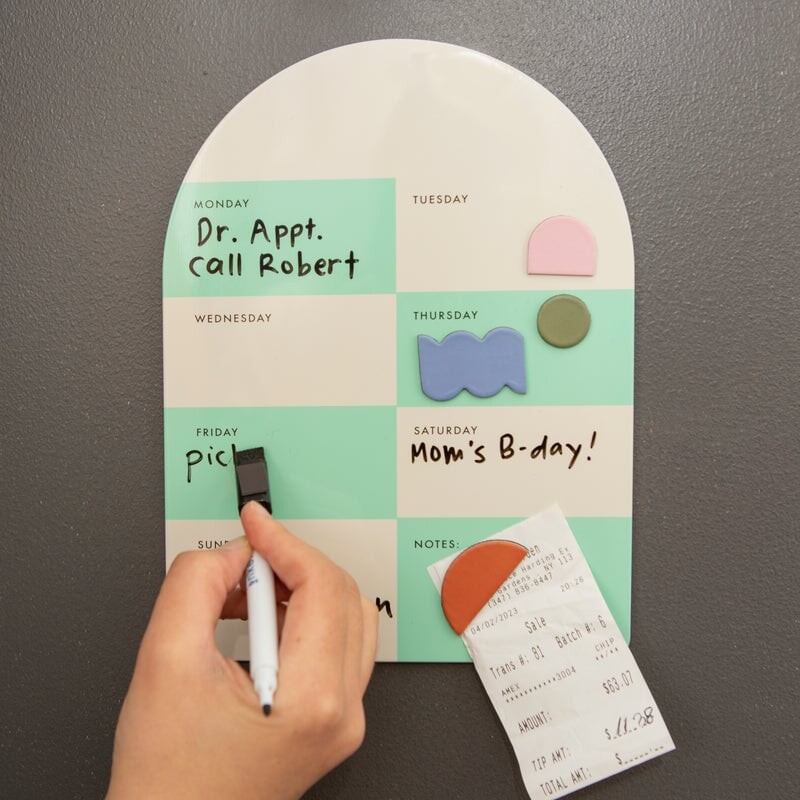 MONDAY
Dr. Appt.
Call Robert
TUESDAY
WEDNESDAY
THURSDAY
FRIDAY
SATURDAY
Mom's B-day!
NOTES:
Harding Ex
Gardens, NY 113
(347) 836-8447
04/02/2023 20:26
Sale
Trans #: 81 Batch #: 6
CHIP
AMEX
***********3004 **/**
AMOUNT: $63.07
TIP AMT: $ 11.38
TOTAL AMT: $